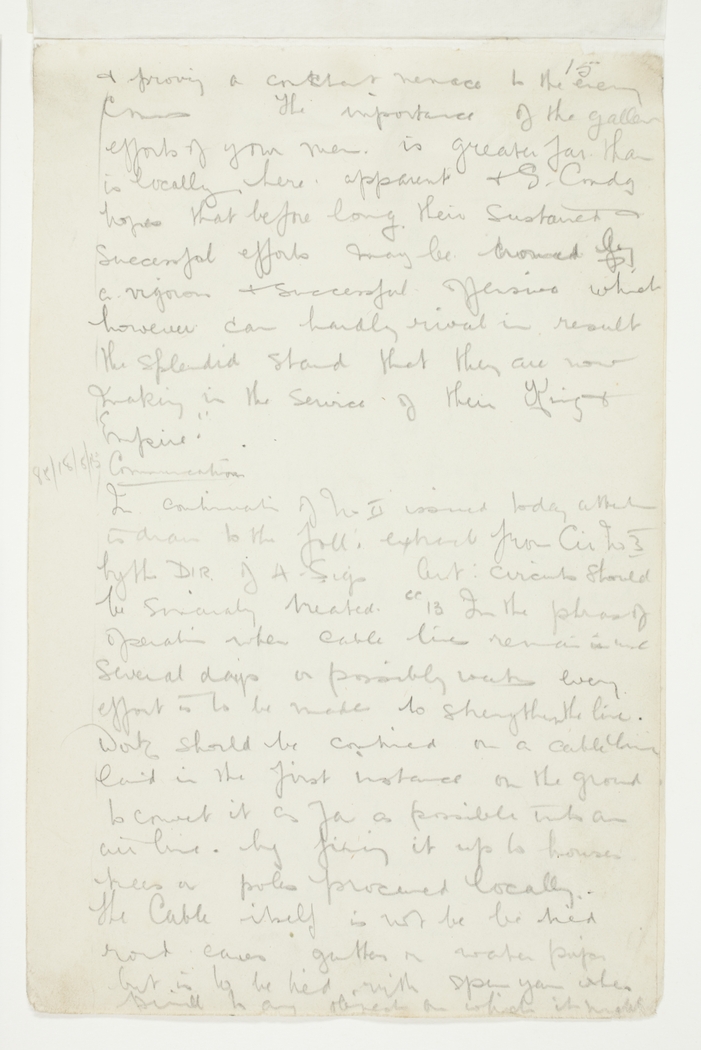 15
& proving a constant menace to the enemy
Coms The importance of the gallant
efforts of your men. is greater far than
is locally here. apparent & G. Comdg
hopes that before long their Sustained &
Successful efforts may be crowned by
a vigorous & Successful offensive which
however can hardly rival in result
the splendid stand that they are now
making in the Service of their King &
Empire".
Communication
In continuation of No II issued today attention
is drawn to the foll: extract from Cir No 3
by the DIR. of A. Sigs circuits should
be similarly treated. "13 In the phase of
operation when cable lines remain in use
Several days or possibly weeks every
effort is to be made to strengthen the line.
Work should be continued on a cable line
laid in the first instance on the ground
to convert it as far as possible into an
air line. by fixing it up to houses
trees or poles procured locally.
The Cable itself is not be be tied
round eaves gutters or water pipes
but is to be tied with spun yarn when
to any object on which it